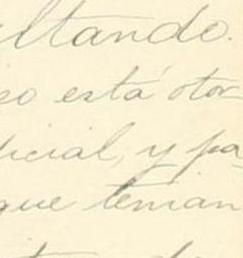 ultando.
so está otor
icial, y pa-
que tenian